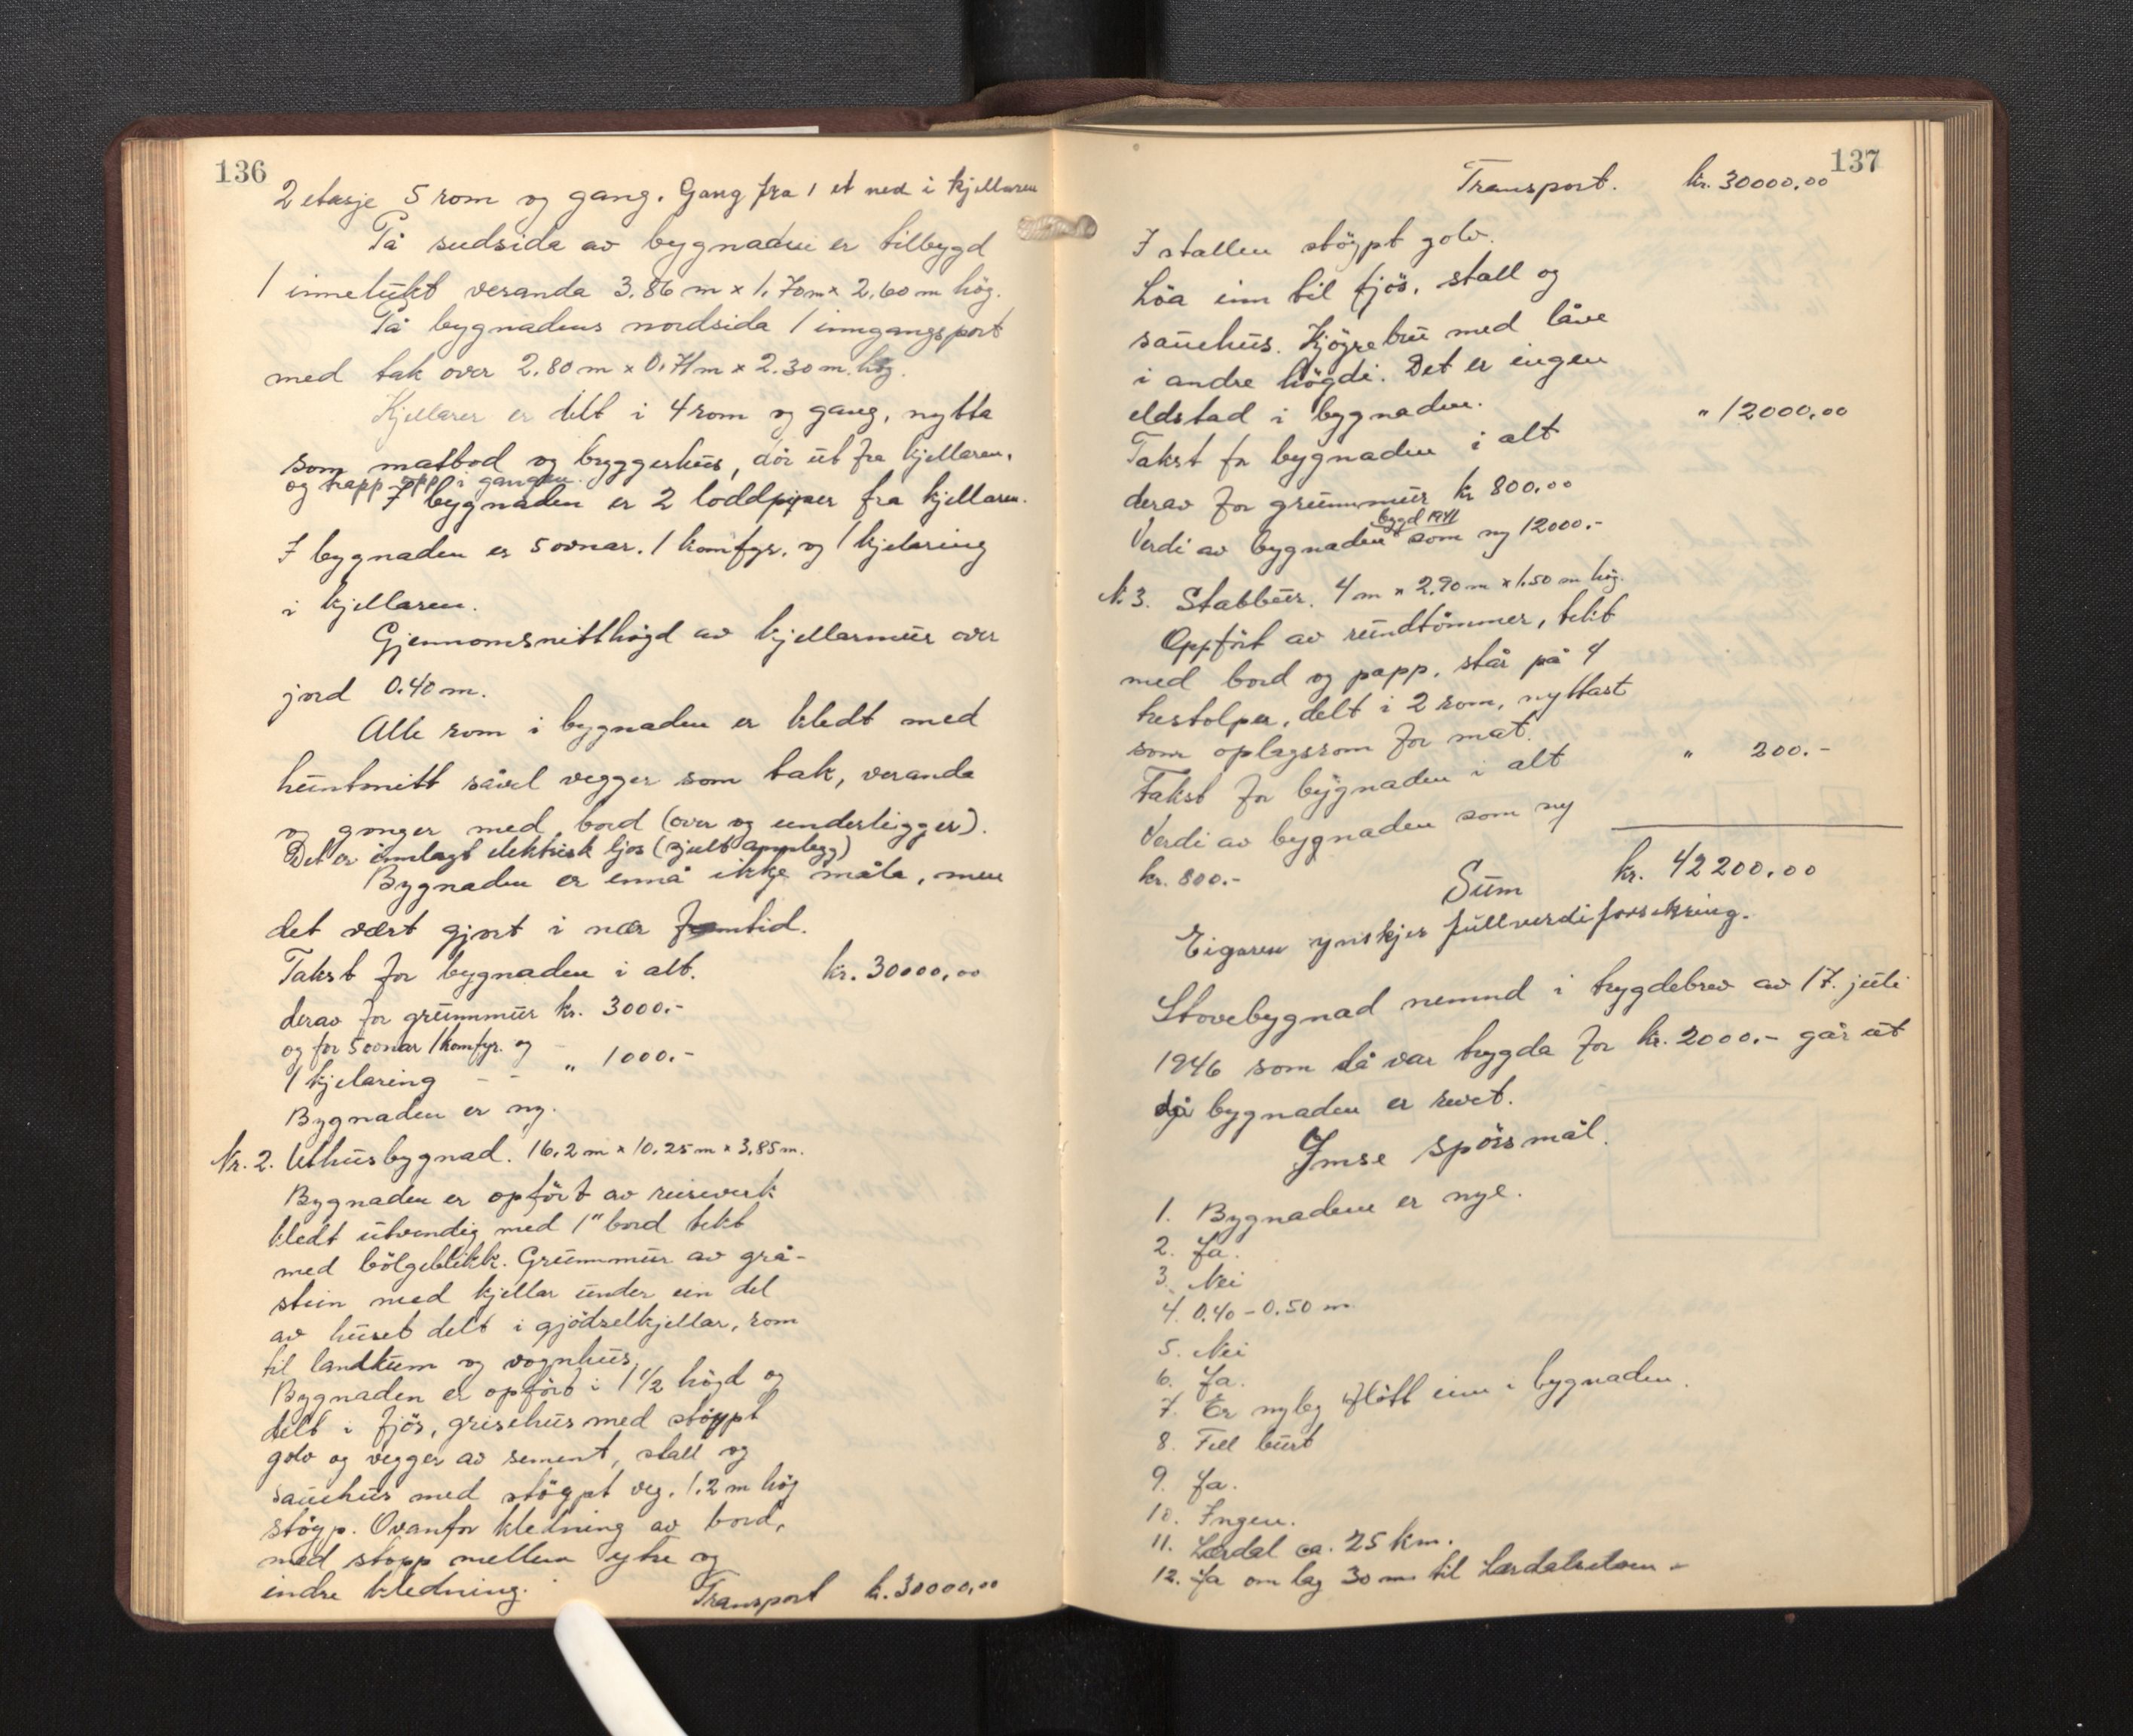 136
2 etasje 5 rom og gang. Gang fra 1 et ned i kjellaren
På sudsida av bygnaden er tilbygd
1 innelukt veranda 3.86 m x 1.70 m x 2.60 m hög.
På bygnadens nordsida 1 inngangsport
med tak over 2.80 m x 0.71 m x 2.30 m. hög.
Kjellarer er delt i 4 rom og gang, nytta
som matbod og bryggerhus, dör ut fra kjellaren,
og trapp opp i gangen.
I bygnaden er 2 loddpiper fra kjellaren.
I bygnaden er 5 ovnar. 1 komfyr. og 1 kjelaring
i kjellaren.
Gjennomsnitthögd av kjellarmur over
jord 0.40 m.
Alle rom i bygnaden er kledt med
huntonitt såvel vegger som tak, veranda
og ganger med bord (over og underligger).
Det er innlagt elektrisk ljos (sjult anlegg)
Bygnaden er ennå ikkje måla, men
det vært gjort i nær framtid.
Takst for bygnaden i alt. kr. 30000,00
derav for grunnmur kr. 3000.-
og for 5 ovnar 1 komfyr. og
1 kjelaring - - „ 1000.-
Bygnaden er ny.
Nr. 2. Uthusbygnad. 16.2 m x 10.25 m x 3.85 m.
Bygnaden er opfört av reisverk
kledt utvendig med 1" bord tekt
med bölgeblikk. Grunnmur av grå-
stein med kjellar under ein del
av huset delt i gjödselkjellar, rom
til landkum og vognhus.
Bygnaden er opfört i 1 1/2 högd og
delt i fjös, grisehus med stöypt
golv og vegger av sement, stall og
sauehus med stöypt veg. 1.2 m hög
stöyp. Ovanfor kledning av bord,
med stopp mellom ytre og
indre kledning.
Transport kr. 30000,00
137
Transport. kr. 30000,00
I stallen stöypt golv.
Löa inn til fjös, stall og
sauehus. Kjöyrebru med låve
i andre högdi. Det er ingen
eldstad i bygnaden.
Takst for bygnaden i alt „ 12000,00
derav for grunnmur kr 800,00
bygd 1941
Verdi av bygnaden som ny 12000.-
Nr. 3. Stabbur. 4 m x 2.90 m x 1.50 m hög.
Oppfört av rundtömmer, tekt
med bord og papp, står på 4
trestolper, delt i 2 rom, nyttast
som oplagsrom for mat.
Takst for bygnaden i alt „ 200.-
Verdi av bygnaden som ny
kr. 800.-
Sum kr. 42200,00
Eigaren ynskjer fullverdiforsikring.
Stovebygnad nemnd i trygdebrev av 17. juli
1946 som då var trygda for kr. 2000.- går ut
då bygnaden er revet.
Ymse spörsmål.
1. Bygnadene er nye.
2. Ja.
3. Nei
4. 0.40 - 0.50 m
5. Nei
6. Ja.
7. Er nyleg flött inn i bygnaden.
8. Fell burt
9. Ja.
10. Ingen.
11. Lærdal ca. 25 km.
12. Ja om lag 30 m til Lærdalselven -